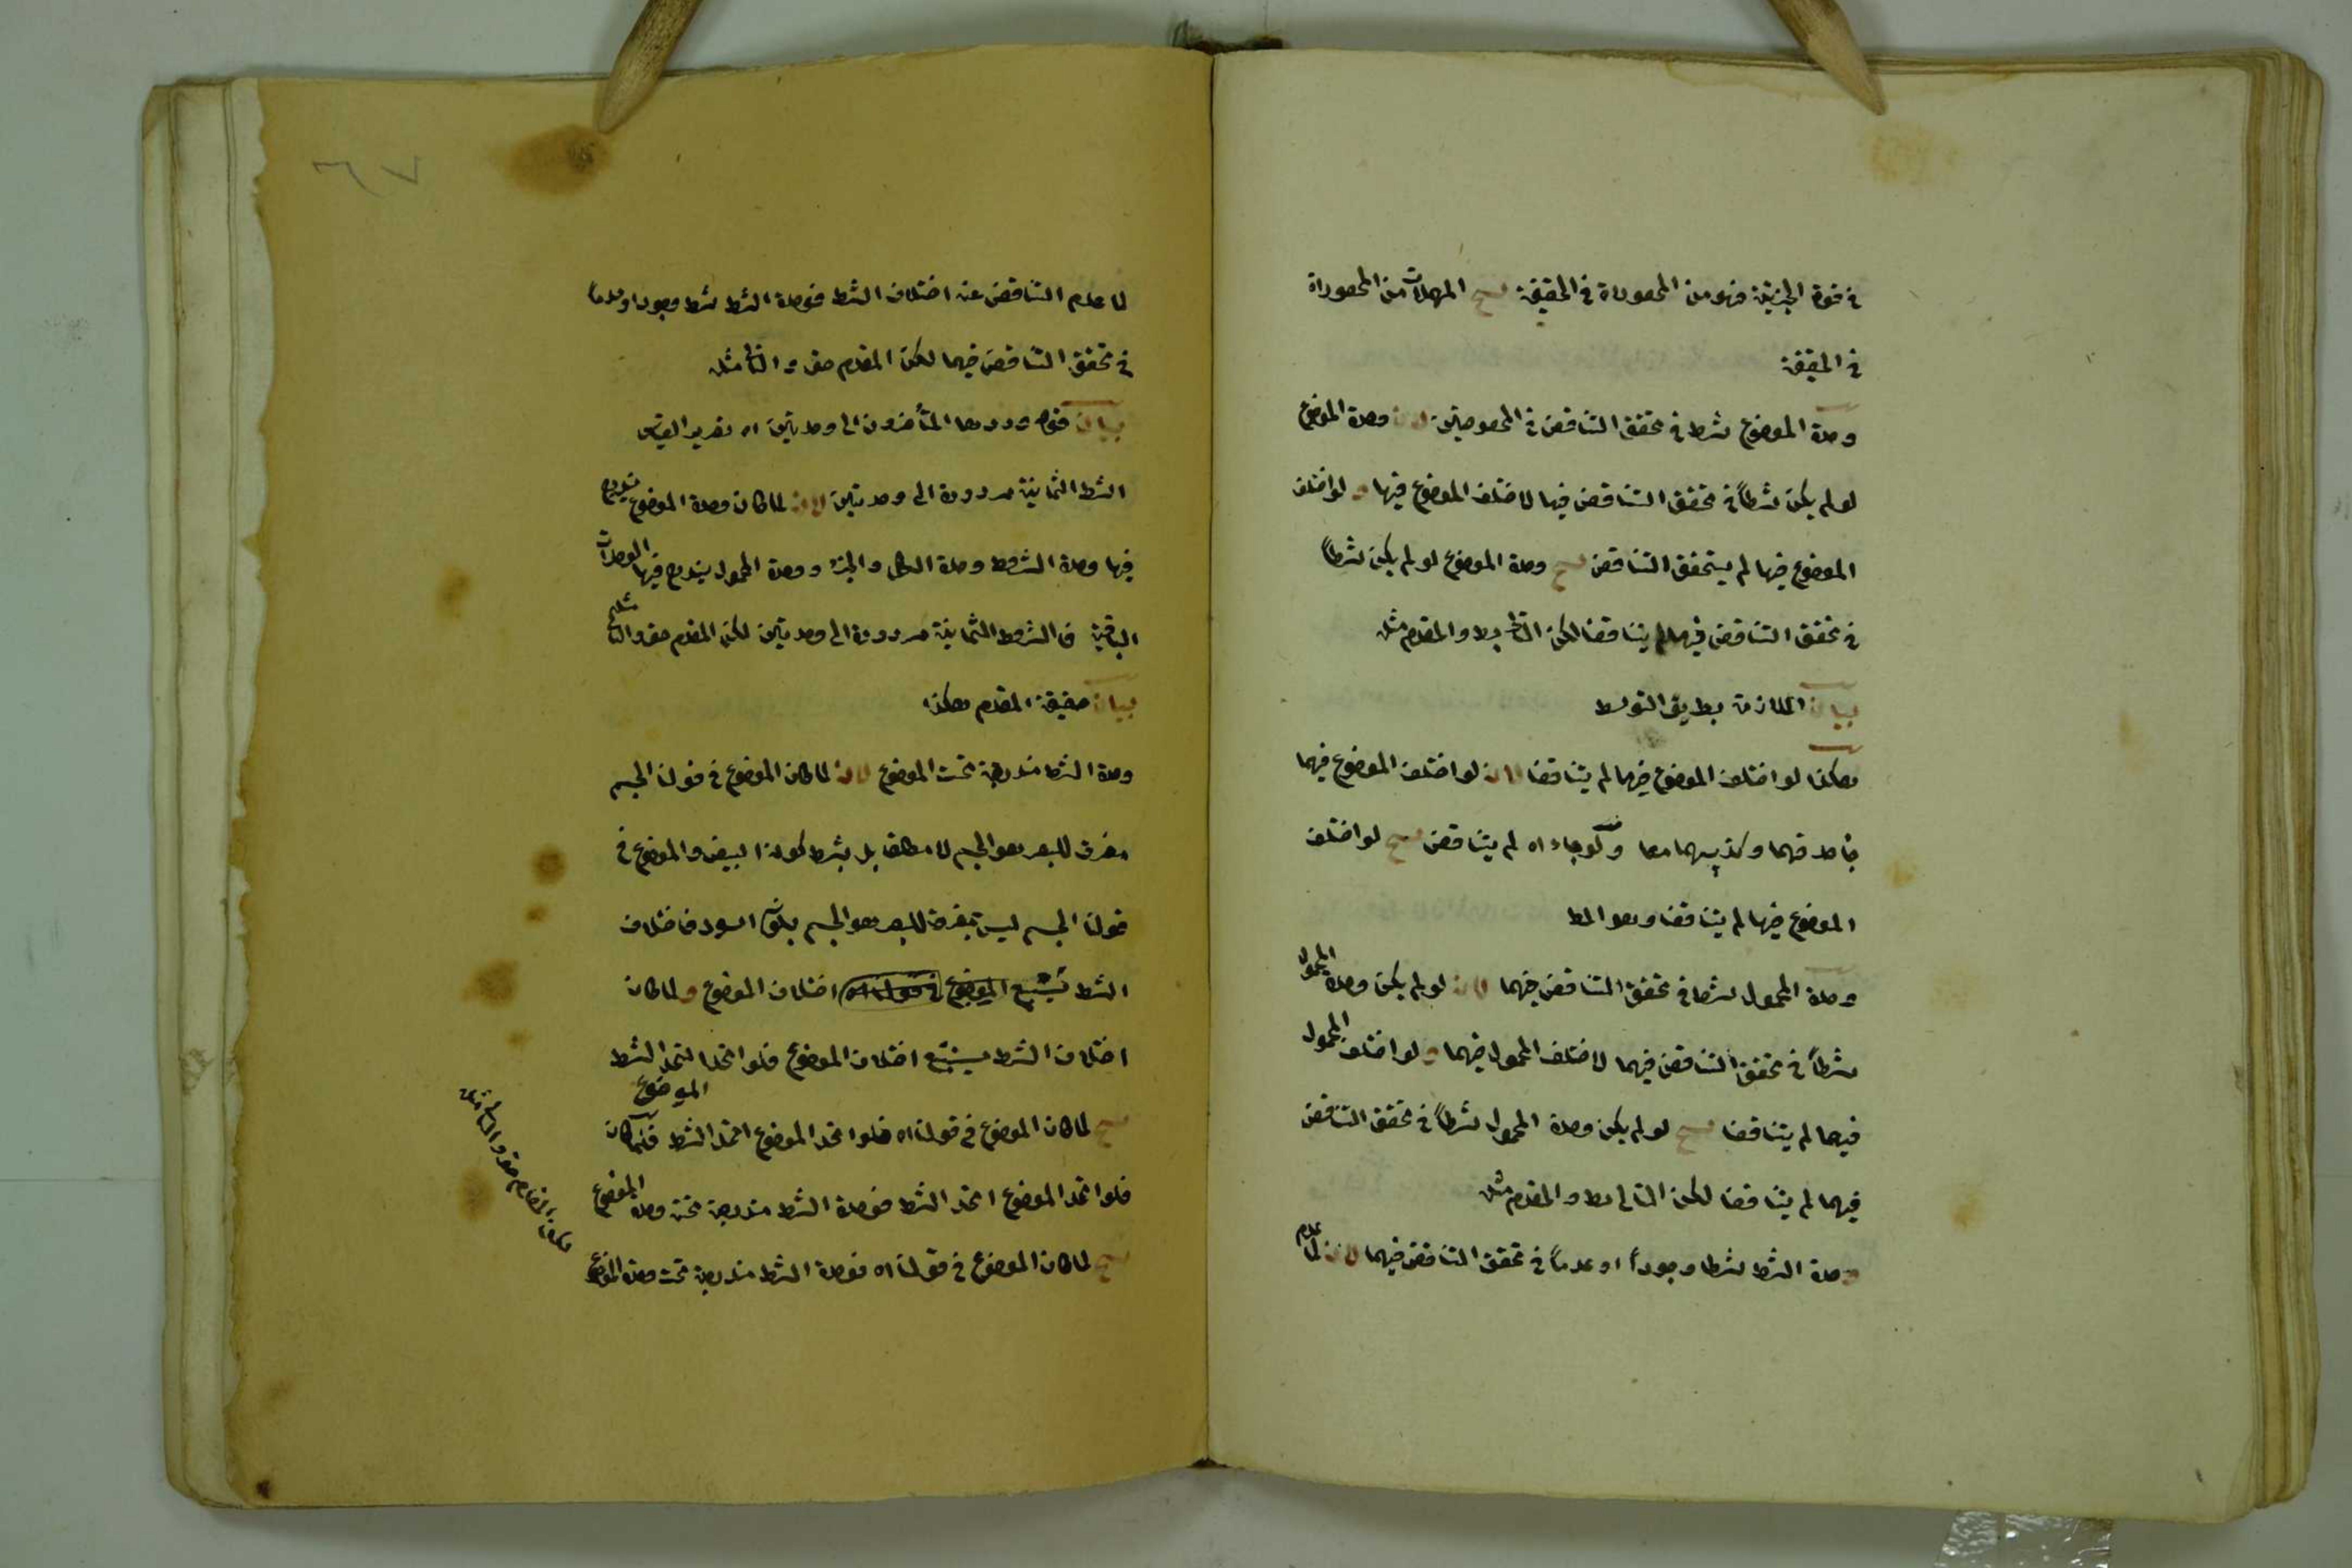 في قوة الجزئية فهو من المحصوراة في الحقيقة ينتج المهملات من المحصوراة
في الحقيقة
وحدة الموضوع شرط في تحقق التناقض في المخصوصتين لان وحدة الموضوع
لو لم يكن شرطاً في تحقق التناقض فيها لاختلف الموضوع فيها و لو اختلف
الموضوع فيها لم يتحقق التناقض ينتج وحدة الموضوع لو لم يكن شرطاً
في تحقق التناقض فيهما لم يتناقضا لكن التالى بط والمقدم مثله
بيان الملازمة بطريق التوسط
هكذا لو اختلف الموضوع فيهما لم يتناقضا لان لو اختلف الموضوع فيهما
صدقهما وكذبهما معا ولو جاز اه لم يتناقض ينتج لو اختلف
الموضوع فيها لم يتناقضا وهو المط
وحدة المحمول شرط في تحقق التناقض فيهما لان لو لم يكن وحدة المحمول
شرطاً في تحقق التناقض فيهما لاختلف المحمول فيهما و لو اختلف المحمول
فيهما لم يتناقضا ينتج لو لم يكن وحدة المحمول شرطاً في تحقق التناقض
فيهما لم يتناقضا لكن التالى بط والمقدم مثله
وحدة الشرط شرط وجوداً او عدماً في تحقق التناقض فيهما لان لما عدم
٦٧
لما عدم التناقض عند اختلاف الشرط فوحدة الشرط شرط وجودا وعدماً
في تحقق التناقض فيهما لكن المقدم حق والتالى مثله
بيان قوله وردها المتأخرون الى وحدتين اه تقرير القياس
الشرط الثمانية مردودة الى وحدتين لان لما كان وحدة الموضوع يندرج
فيها وحدة الشرط وحدة الكل والجزء ووحدة المحمول يندرج فيها الوحدات
الباقية فالشروط الثمانية مردودة الى وحدتين لكن المقدم حق والتالى مثله
بيان حقيقة المقدم هكذا
وحدة الشرط مندرجة تحت الموضوع لان لما كان الموضوع في قولنا الجسم
مفرق للبصر هو الجسم لا مطلقا بل بشرط كونه ابيض والموضوع في
قولنا الجسم ليس بمفرق للبصر هو الجسم بكونه اسود فاختلاف
الشرط يستتبع الموضوع في قولنا اه اختلاف الموضوع و لما كان
اختلاف الشرط يستتبع اختلاف الموضوع فلو اتحد اتحد الشرط
الموضوع
ينتج لما كان الموضوع في قولنا اه فلو اتحد الموضوع اتحد الشرط فلما كان
فلو اتحد الموضوع اتحد الشرط فوحدة الشرط مندرجة تحت وحدة الموضوع
ينتج لما كان الموضوع في قولنا اه فوحدة الشرط مندرجة تحت وحدة الموضوع
لكن المقدم حق والتالى مثله